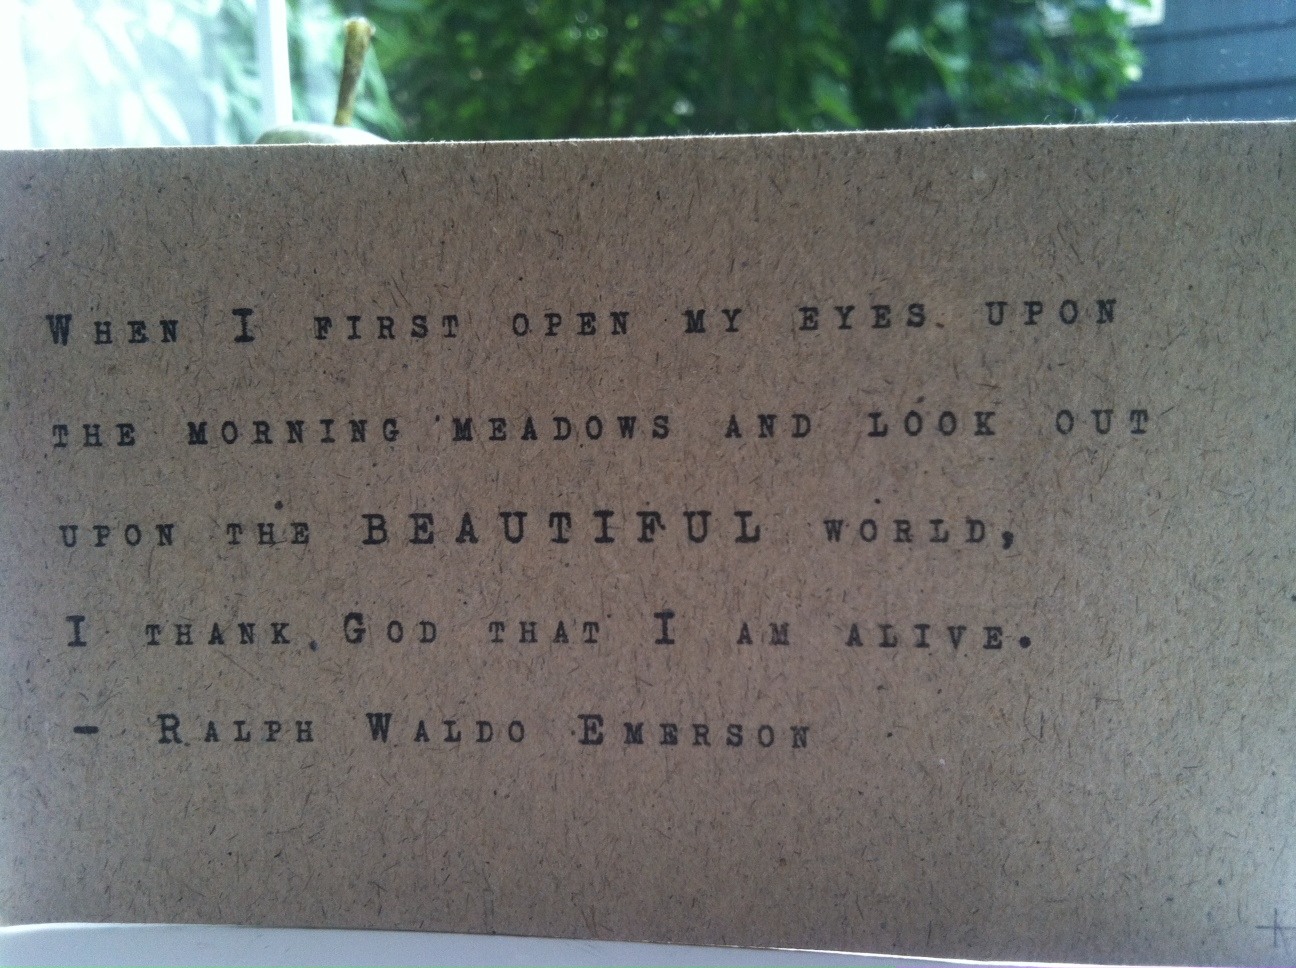 When I first open my eyes upon
the morning meadows and look out
upon the BEAUTIFUL world,
I thank God that I am alive.
- Ralph Waldo Emerson